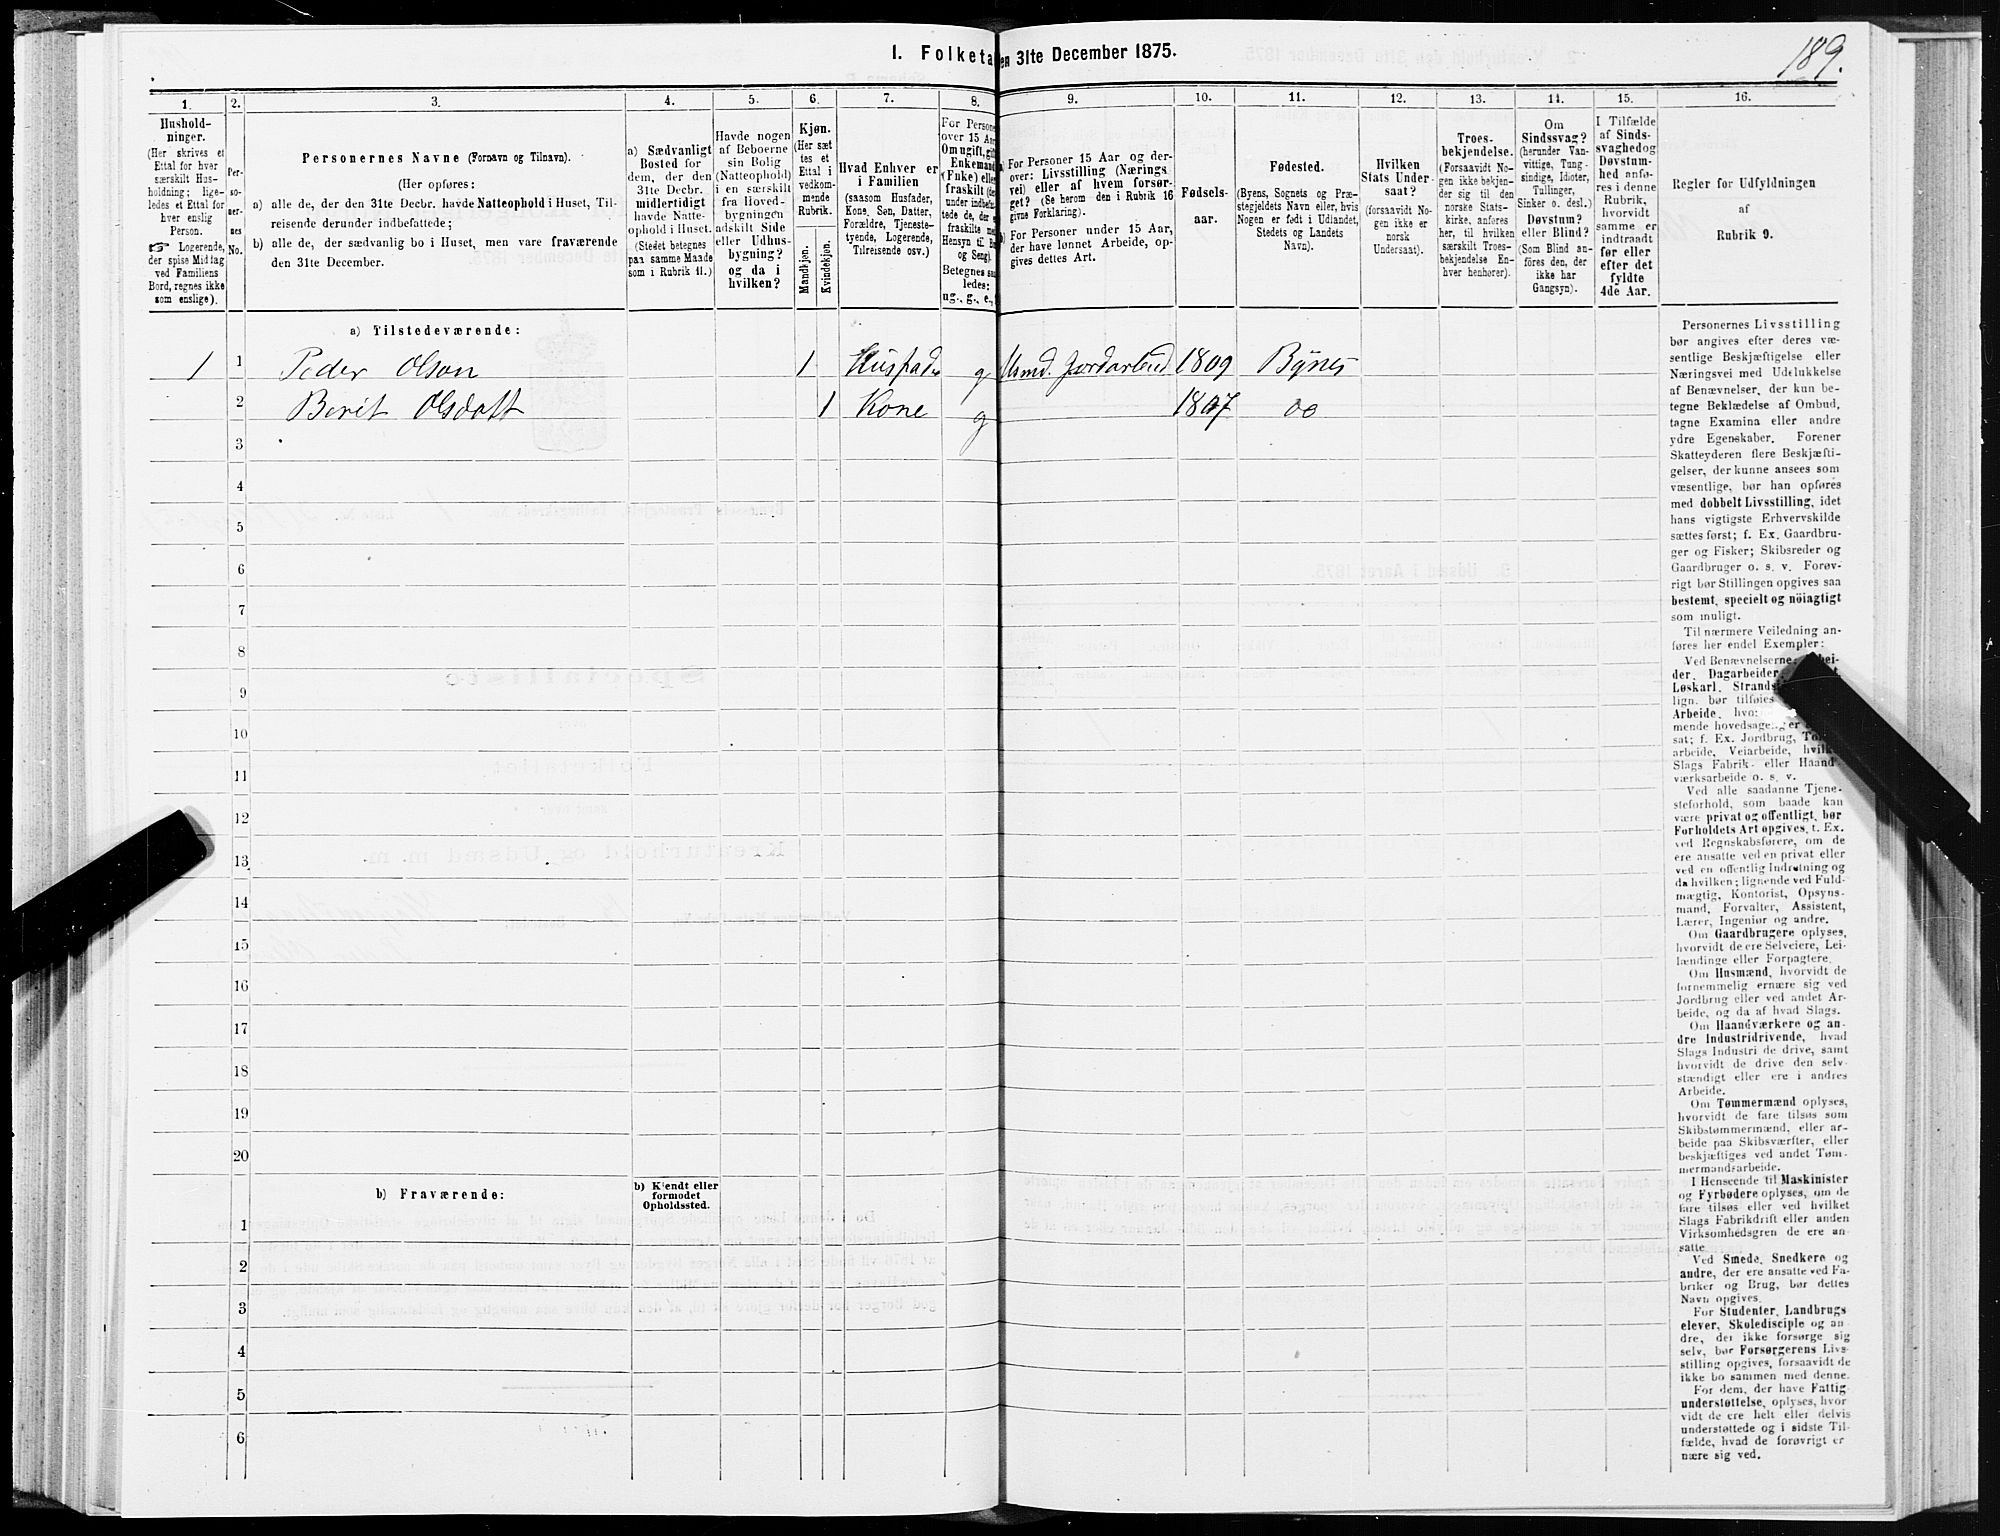 I. Folketa en 31te December 1875.
189.
1.
Hushold-
ninger.
(Her skrives et
Ettal for hver
særskilt Hus-
holdning; lige-
ledes et Ettal for
hver enslig
Person.
☞ Logerende,
der spise Middag
ved Familiens
Bord, regnes ikke
som enslige).
2.
Per-
so-
ner-
nes
No.
3.
Personernes Navne (Fornavn og Tilnavn).
(Her opføres:
a) alle de, der den 31te Decbr. havde Natteophold i Huset, Til-
reisende derunder indbefattede;
b) alle de, der sædvanlig bo i Huset, men vare fraværende
den 31te December.
4.
a) Sædvanligt
Bosted for
dem, der den
31te Decbr.
midlertidigt
havde Natte-
ophold i Huset.
(Stedet betegnes
paa samme Maade
som i Rubrik 11.)
5.
Havde nogen
af Beboerne
sin Bolig
(Natteophold)
i en særskilt
fra Hoved-
bygningen
adskilt Side
eller Udhus-
bygning?
og da i
hvilken?
6.
Kjøn.
(Her sæt
tes et
Ettal i
vedkom-
mende
Rubrik.
Mandkjøn.
Kvindekjøn.
7.
Hvad Enhver er
i Familien
(saasom Husfader,
Kone, Søn, Datter,
Forældre, Tjeneste-
tyende, Logerende,
Tilreisende osv.)
8.
For Persone
over 15 Aar
Om ugift, gift
Enkemand
(Enke) elle
fraskilt (de
under indbefat
tede de, der e
fraskilte me
Hensyn til Bo
og Seng).
Betegnes saa
ledes:
ug., g., e.,
9.
a) For Personer 15 Aar og der-
over: Livsstilling (Nærings
vei) eller af hvem forsør-
get? (Se herom den i Rubrik 16
givne Forklaring).
b) For Personer under 15 Aar,
der have lønnet Arbeide, op-
gives dettes Art.
10.
Fødsels-
aar.
11.
Fødested.
(Byens, Sognets og Præ-
stegjeldets Navn eller, hvis
Nogen er født i Udlandet,
Stedets og Landets
Navn).
12.
Hvilken
Stats Under-
saat?
(forsaavidt No-
gen ikke er
norsk
Undersaat).
13.
Troes-
bekjendelse.
(Forsaavidt No-
gen ikke bekjen-
der sig til den
norske Stats-
kirke, anføres
her, til hvilken
særskilt Troes-
bekjendelse En-
hver henhører).
14.
Om
Sindssvag?
(herunder Van-
vittige, Tung-
sindige, Idioter,
Tullinger,
Sinker o. desl.)
Døvstum?
eller Blind?
(Som Blind an-
føres den, der
ikke har
Gangsyn).
15.
I Tilfælde
af Sinds-
svaghed og
Døvstum-
hed anfø-
res i denne
Rubrik,
hvorvidt
samme er
indtraadt
før eller
efter det
fyldte
4de Aar.
16.
Regler for Udfyldningen
af
Rubrik 9.
a) Tilstedeværende:
1 1 Peder Olson 1 Husfad. g Husmd. Jordarbeid 1809 Bynes
2 Berit Olsdatt 1 Kone g 1807 do
3
4
5
6
7
8
9
10
11
12
13
14
15
16
17
18
19
20
b) Fraværende:
b) Kjendt eller
formodet
Opholdssted.
1
2
3
4
5
6
Personernes Livsstilling
bør angives efter deres væ-
sentlige Beskjæftigelse eller
Næringsvei med Udelukkelse
af Benævnelser, der kun be-
tegne Beklædelse af Ombud,
tagne Examina eller andre
ydre Egenskaber. Forener
Skatteyderen flere Beskjæfti-
gelser, der kunne ansees som
væsentlige, bør han opføres
med dobbelt Livsstilling, idet
hans vigtigste Erhvervskilde
sættes først; f. Ex. Gaardbru-
ger og Fisker; Skibsreder og
Gaardbruger o. s. v. Forøv-
rigt bør Stillingen opgives saa
bestemt, specielt og nöiagtigt
som muligt.
Til nærmere Veiledning an-
føres her endel Exempler:
Ved Benævnelserne:
der, Dagarbeider
Løskarl, Strands
lign. bør tilføies
Arbeide, hvo
mende hovedsagel
sat; f. Ex. Jordbrug,
arbeide, Veiarbeide, hvilk
Slags Fabrik- eller Haand-
værksarbeide o. s. v.
Ved alle saadanne Tjene-
steforhold, som baade kan
være privat og offentligt, bør
Forholdets Art opgives, t. Ex.
ved Regnskabsførere, om de
ere ansatte ved en privat eller
ved en offentlig Indretning og
da hvilken; lignende ved Fuld-
mægtig, Kontorist, Opsyns-
mand, Forvalter, Assistent,
Lærer, Ingeniør og andre.
Om Gaardbrugere oplyses,
hvorvidt de ere Selveiere, Lei-
lændinge eller Forpagtere.
Om Husmænd, hvorvidt de
fornemmelig ernære sig ved
Jordbrug eller ved andet Ar-
beide, og da af hvad Slags.
Om Haandværkere og an-
dre Industridrivende, hvad
Slags Industri de drive, samt
hvorvidt de drive den selv-
stændigt eller ere i andres
Arbeide.
Om Tømmermænd oplyses,
hvorvidt de fare tilsøs som
Skibstømmermænd, eller ar-
beide paa Skibsværfter, eller
beskjæftiges ved andet Tøm-
mermandsarbeide.
I Henseende til Maskinister
og Fyrbødere oplyses, om de
fare tilsøs eller ved hvilket
Slags Fabrikdrift eller anden
Virksomhedsgren de ere an-
satte.
Ved Smede, Snedkere og
andre, der ere ansatte ved Fa-
briker og Brug, bør dettes
Navn opgives.
For Studenter, Landbrugs
elever, Skoledisciple og an
dre, der ikke forsørge sig
selv, bør Forsørgerens Livs-
stilling opgives, forsaavidt de
ikke bo sammen med denne.
For dem, der have Fattig
understøttelse, oplyses, hvor
vidt de ere helt eller delvis
understøttede og i sidste Til-
fælde, hvad de forøvrigt er
nære sig ved.